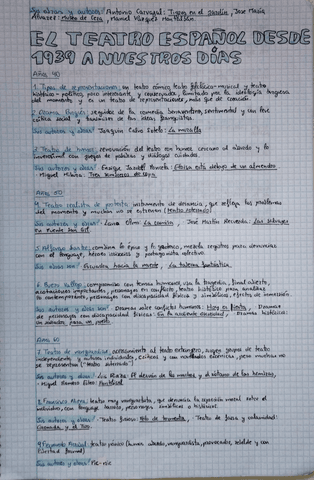 Sus obras y autores: Antonio Carvajal: Tigres en el Jardín, José María
Álvarez: Museo de Cera, Manuel Vázquez Montalbán
EL TEATRO ESPAÑOL DESDE
1939 A NUESTROS DÍAS
Año 40
1. Tipos de representaciones: un teatro cómico, teatro folclórico-musical y teatro
histórico-político, poco interesante y conservador, limitado por la ideología franquista
del momento y es un teatro de representaciones, más que de creación.
2. Drama Burgués, seguidor de la comedia benaventina, sentimental y con leve
crítica social y transmisión de las ideas franquistas.
Sus autores y obras: Joaquín Calvo Sotelo: La muralla
3. Teatro de humor, renovación del teatro con humor cercano al absurdo y lo
inverosímil con juegos de palabras y diálogos cuidados.
Sus autores y obras: Enrique Jardiel Poncela: Eloísa está debajo de un almendro
- Miguel Mihura: Tres sombreros de copa
Año 50
4. Teatro realista de protesta: instrumento de denuncia, que refleja los problemas
del momento y muchas no se estrenan (teatro soterrado).
Sus autores y obras: Lauro Olmo: La camisa, José Martín Recuerda: Las salvajes
en Puente San Gil.
5. Alfonso Sastre, combina lo épico y lo
con el lenguaje, héroes y protagonista colectivo.
Sus obras son: Escuadra hacia la muerte, La taberna fantástica
6. Buero Vallejo, compromiso con temas humanos, usa la tragedia, final abierto,
acotaciones importantes, personajes en conflicto, teatro histórico para analizar
lo contemporáneo, personajes con discapacidad física y simbólicos, efectos de inmersión.
Sus autores y obras son: Dramas sobre conflictos humanos: Hoy es fiesta, Dramas
de personajes con discapacidad físicas: En la ardiente oscuridad, Drama histórico:
Un soñador para un pueblo.
Año 60
7. Teatro de vanguardia: acercamiento al teatro extranjero, surgen grupos de teatro
independiente y autores individuales, críticos y con novedades escénicas, pero muchas no
se representan ("teatro soterrado").
Sus autores y obras: Luis Riaza: El desván de los machos y el sótano de las hembras,
- Miguel Romero Esteo: Pontifical
8. Francisco Nieva, teatro muy vanguardista, que denuncia la opresión moral sobre el
individuo, con lenguaje barroco, personajes simbólicos o históricos.
Sus autores y obras: Teatro furioso: Pelo de tormenta, Teatro de farsa y calamidad:
9. Fernando Arrabal: teatro pánico (humor absurdo, vanguardista, provocador, rebelde y con
libertad formal)
Sus autores y obras: Pic-nic